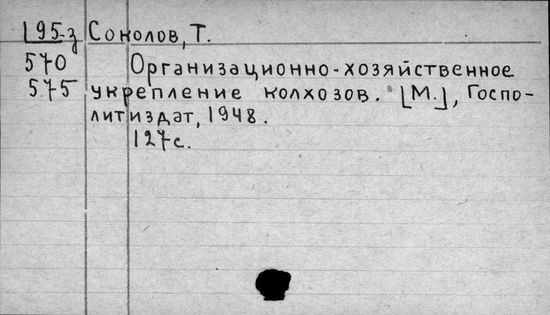 195-з Соколов, Т.
570 Организационно-хозяйственное
575 укрепление колхозов. [М.], Госпо-
литиздат, 1948.
127с.